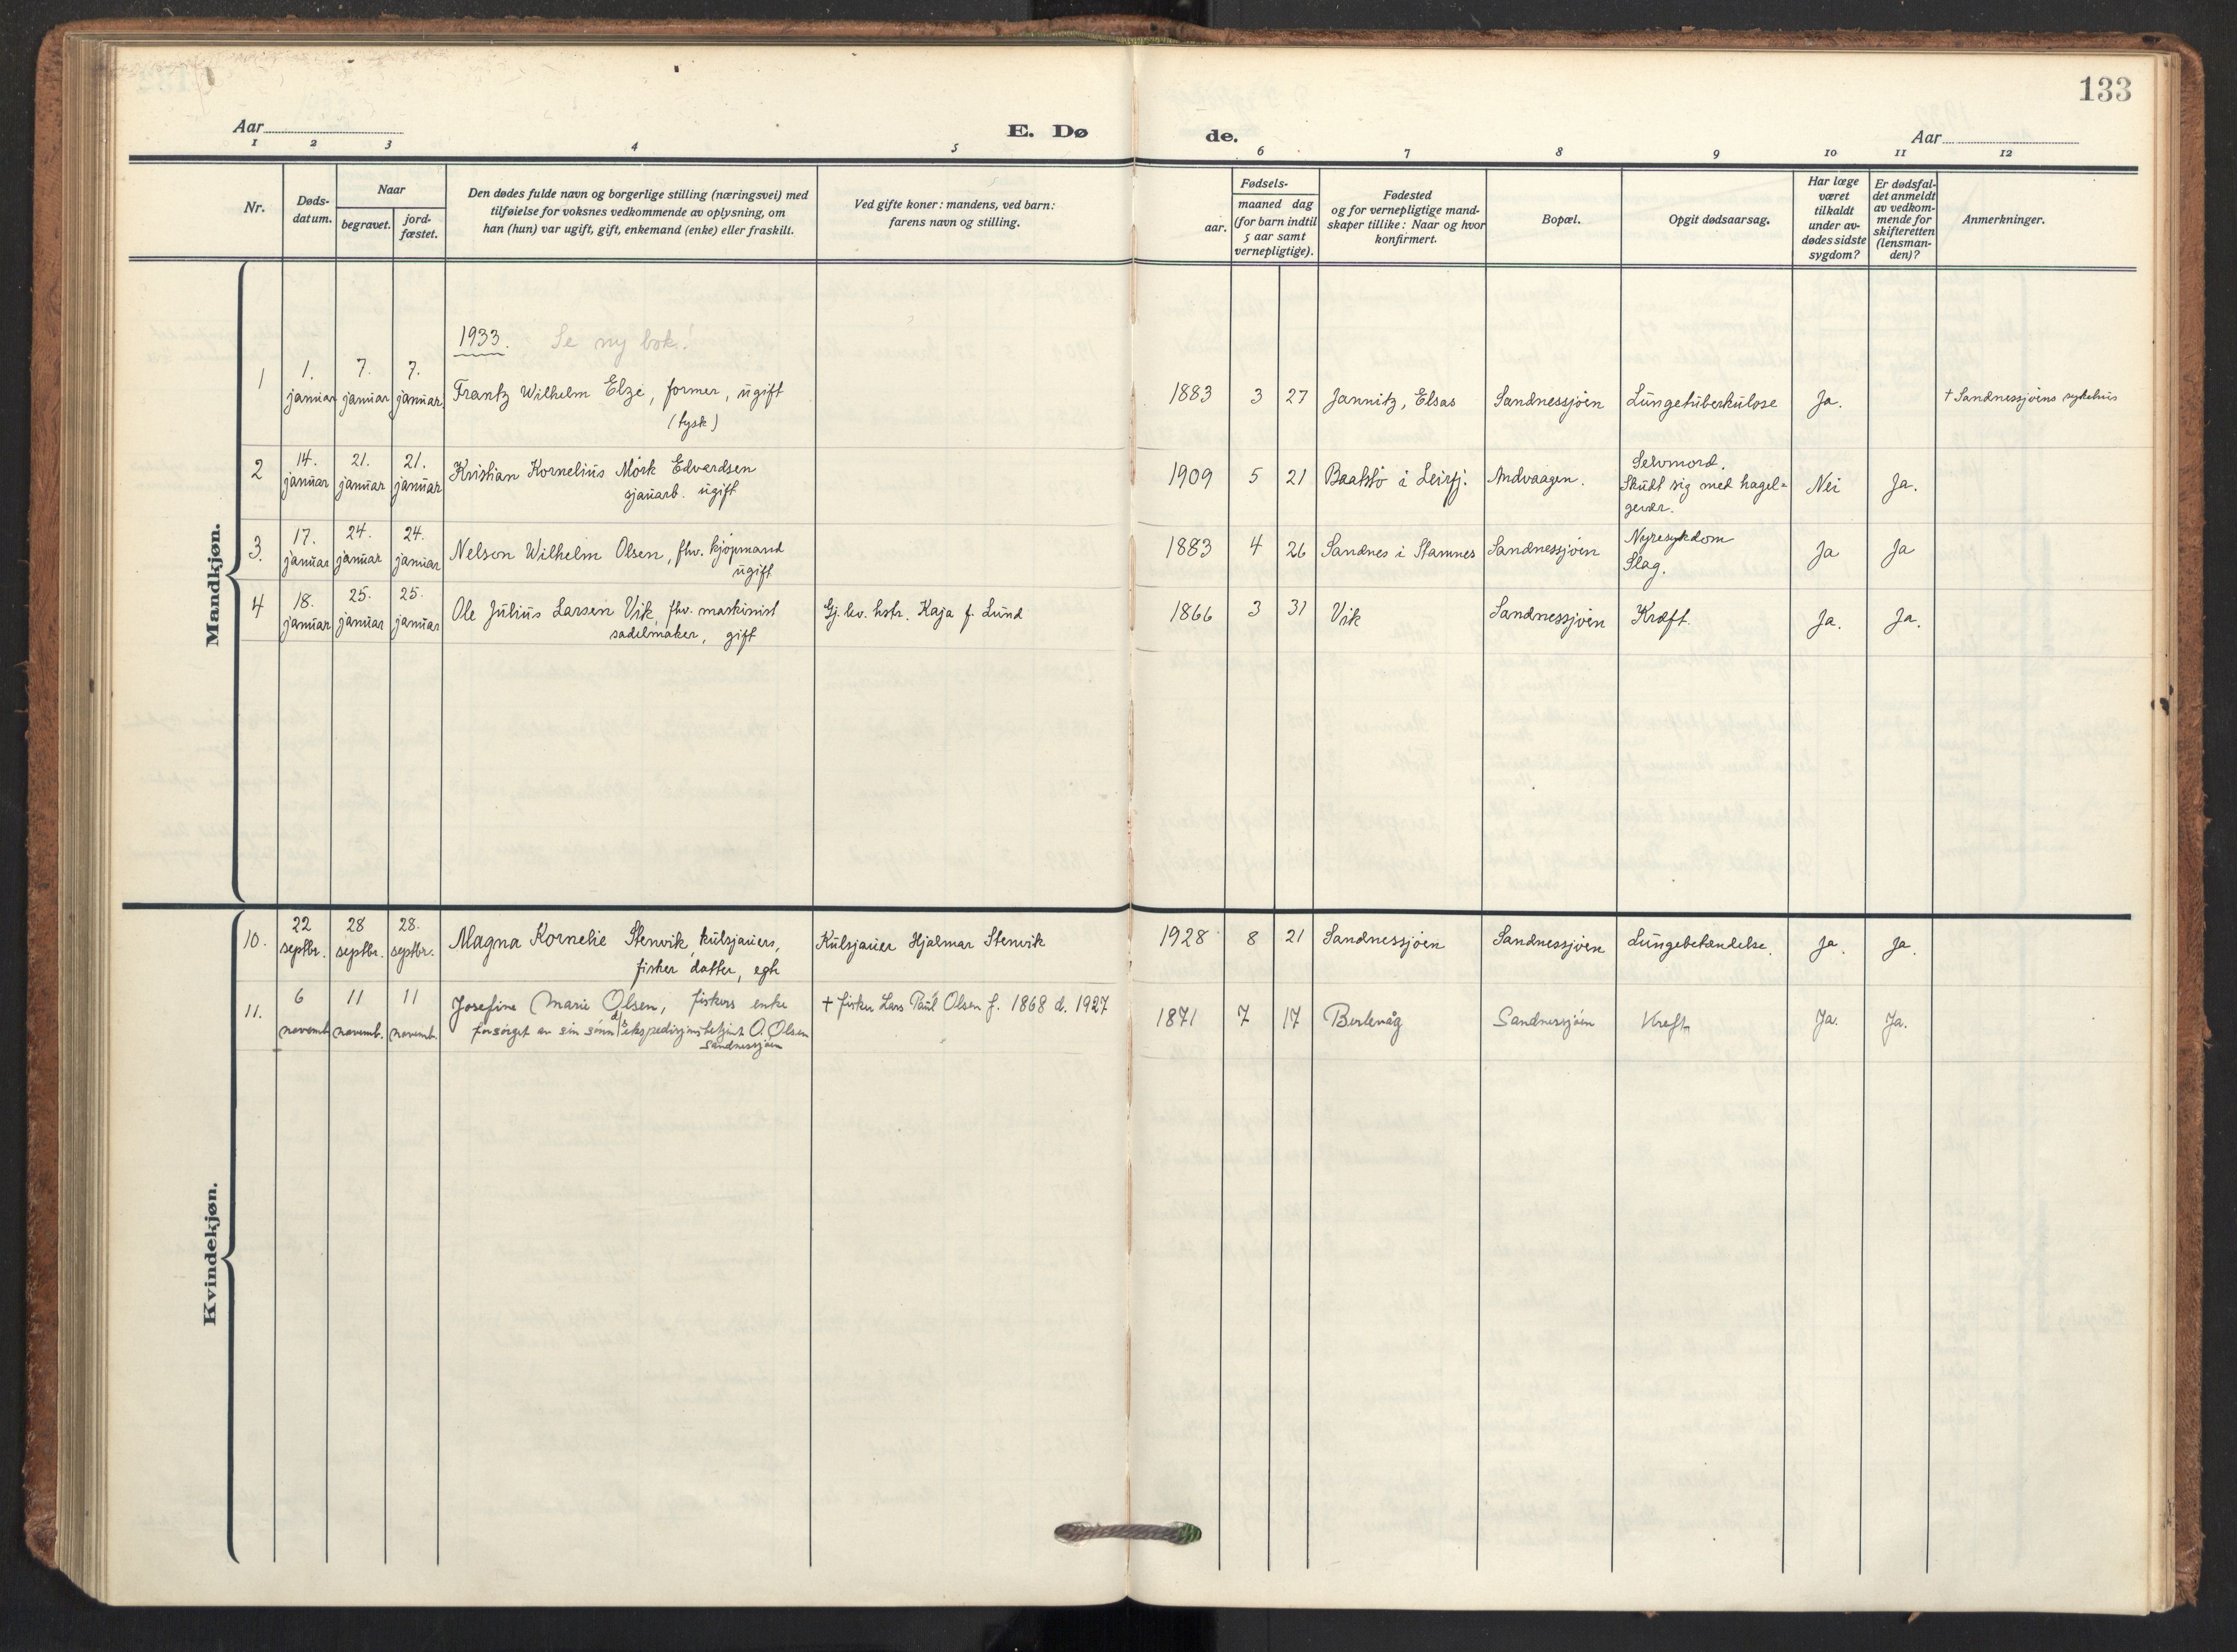 133
Aar
E. Dø
de.
Aar
1 2 3 4 5 6 7 8 9 10 11 12
Nr.
Døds-
datum.
Naar
begravet.
jord-
fæstet.
Den dødes fulde navn og borgerlige stilling (næringsvei) med
tilføielse for voksnes vedkommende av oplysning, om
han (hun) var ugift, gift, enkemand (enke) eller fraskilt.
Ved gifte koner: mandens, ved barn:
farens navn og stilling.
Fødsels-
aar.
maaned dag
(for barn indtil
5 aar samt
vernepligtige).
Fødested
og for vernepligtige mand-
skaper tillike: Naar og hvor
konfirmert.
Bopæl.
Opgit dødsaarsag.
Har læge
været
tilkaldt
under av-
dødes sidste
sygdom?
Er dødsfal-
det anmeldt
av vedkom-
mende for
skifteretten
(lensman-
den)?
Anmerkninger.
Mandkjøn.
1933. Se ny bok!
1 1. 7. 7.
januar januar januar Frantz Wilhelm Elze, former, ugift 1883 3 27 Jannitz, Elsas Sandnessjøen Lungetuberkulose Ja. † Sandnessjøens sykehus
(tysk)
2 14. 21. 21. Kristian Kornelius Mørk Edvardsen 1909 5 21 Baatstø i Leirfj. Andvaagen. Selvmord. Nei Ja.
januar januar januar sjauarb. ugift Skudt sig med hagel=
gevær.
3. 17. 24. 24. Nelson Wilhelm Olsen, fhv. kjøpmand 1883 4 26 Sandnes i Stamnes Sandnessjøen Nyresykdom Ja Ja
januar januar januar ugift Slag.
4 18. 25. 25. Ole Julius Larsen Vik, fhv. maskinist Gj. lev. hstr. Kaja f. Lund 1866 3 31 Vik Sandnessjøen Kræft. Ja. Ja.
januar januar januar sadelmaker, gift
Kvindekjøn.
10. 22 28 28. Magna Kornelie Stenvik, kulsjauers, Kulsjauer Hjalmar Stenvik 1928 8 21 Sandnessjøen Sandnessjøen Lungebetændelse. Ja. Ja.
septbr. septbr. septbr. fisker datter, egte
11. 6 11 11 Josefine Marie Olsen, fiskers enke † fisker Lars Paul Olsen f. 1868 d. 1927 1871 7 17 Berlevåg Sandnessjøen Kreft Ja. Ja.
novemb. novemb. novemb. forsørget av sin sønn d/s ekspedisjonsbetjent O. Olsen
Sandnessjøen